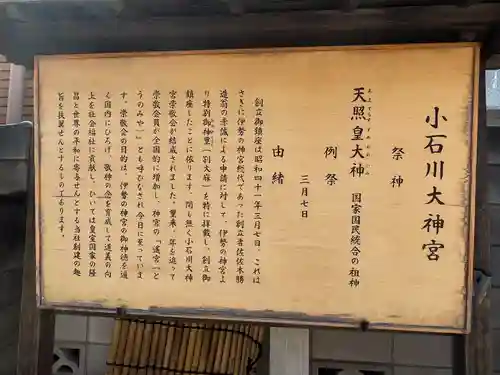 小石川大神宮
祭神
天照皇大神 国家国民統合の祖神
あまてらすすめおおかみ
例祭
三月七日
由緒
創立御鎮座は昭和四十一年三月七日。これは
さきに伊勢の神宮総代であった創立者佐佐木勝
造翁の赤誠による申請に対して、伊勢の神宮よ
り特別御神璽(別大麻)を特に拝戴し、創立御
鎮座したことに依ります。間も無く小石川大神
宮崇敬会が結成されました。爾来、年を追って
崇敬会員が全国的に増加し、神宮の「遙宮」と
うのみや―」とも呼びなされ今日に至っていま
す。崇敬会の目的は、伊勢の神宮の御神徳を遍
く国内にひろげ、敬神の念を育成して道義の向
上を社会福祉に貢献し、ひいては皇室国家の隆
昌と世界の平和に寄与せんとする当社創建の趣
旨を扶翼せんとするものであります。